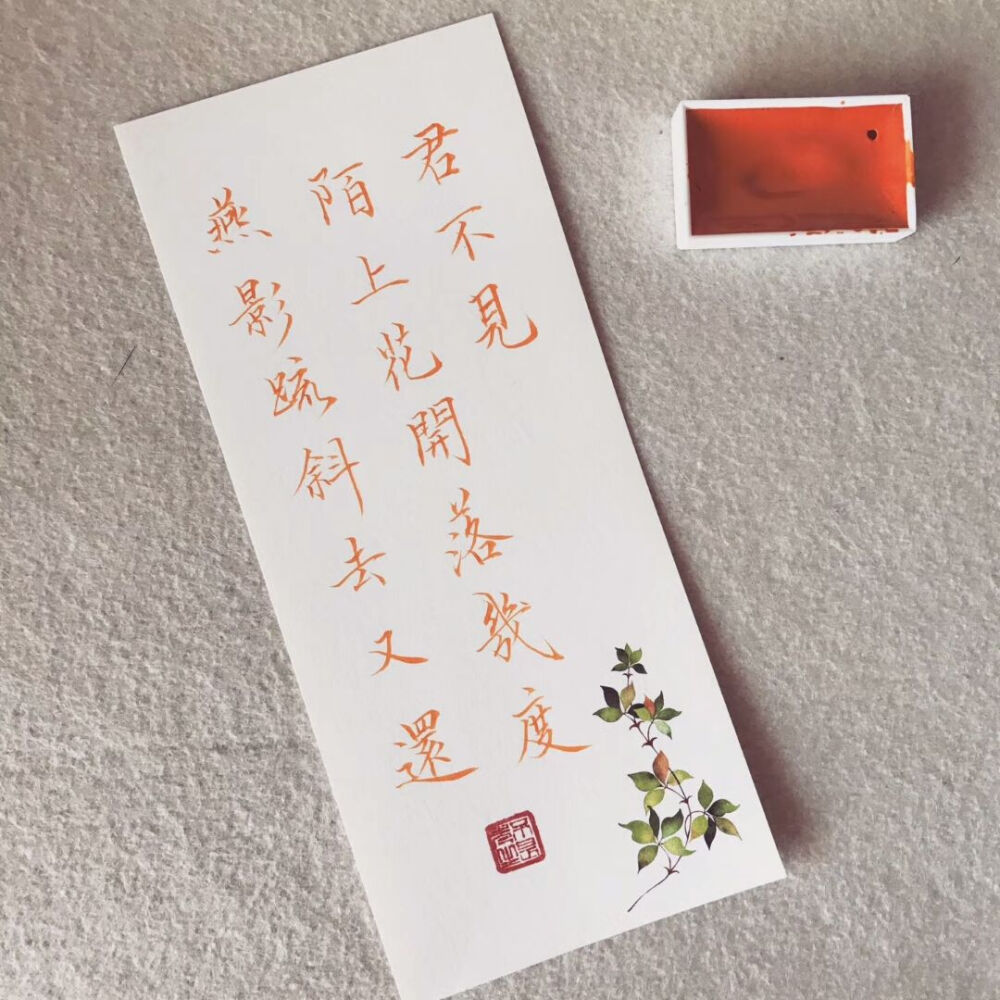 君不見
陌上花開落幾度
燕影疏斜去又還